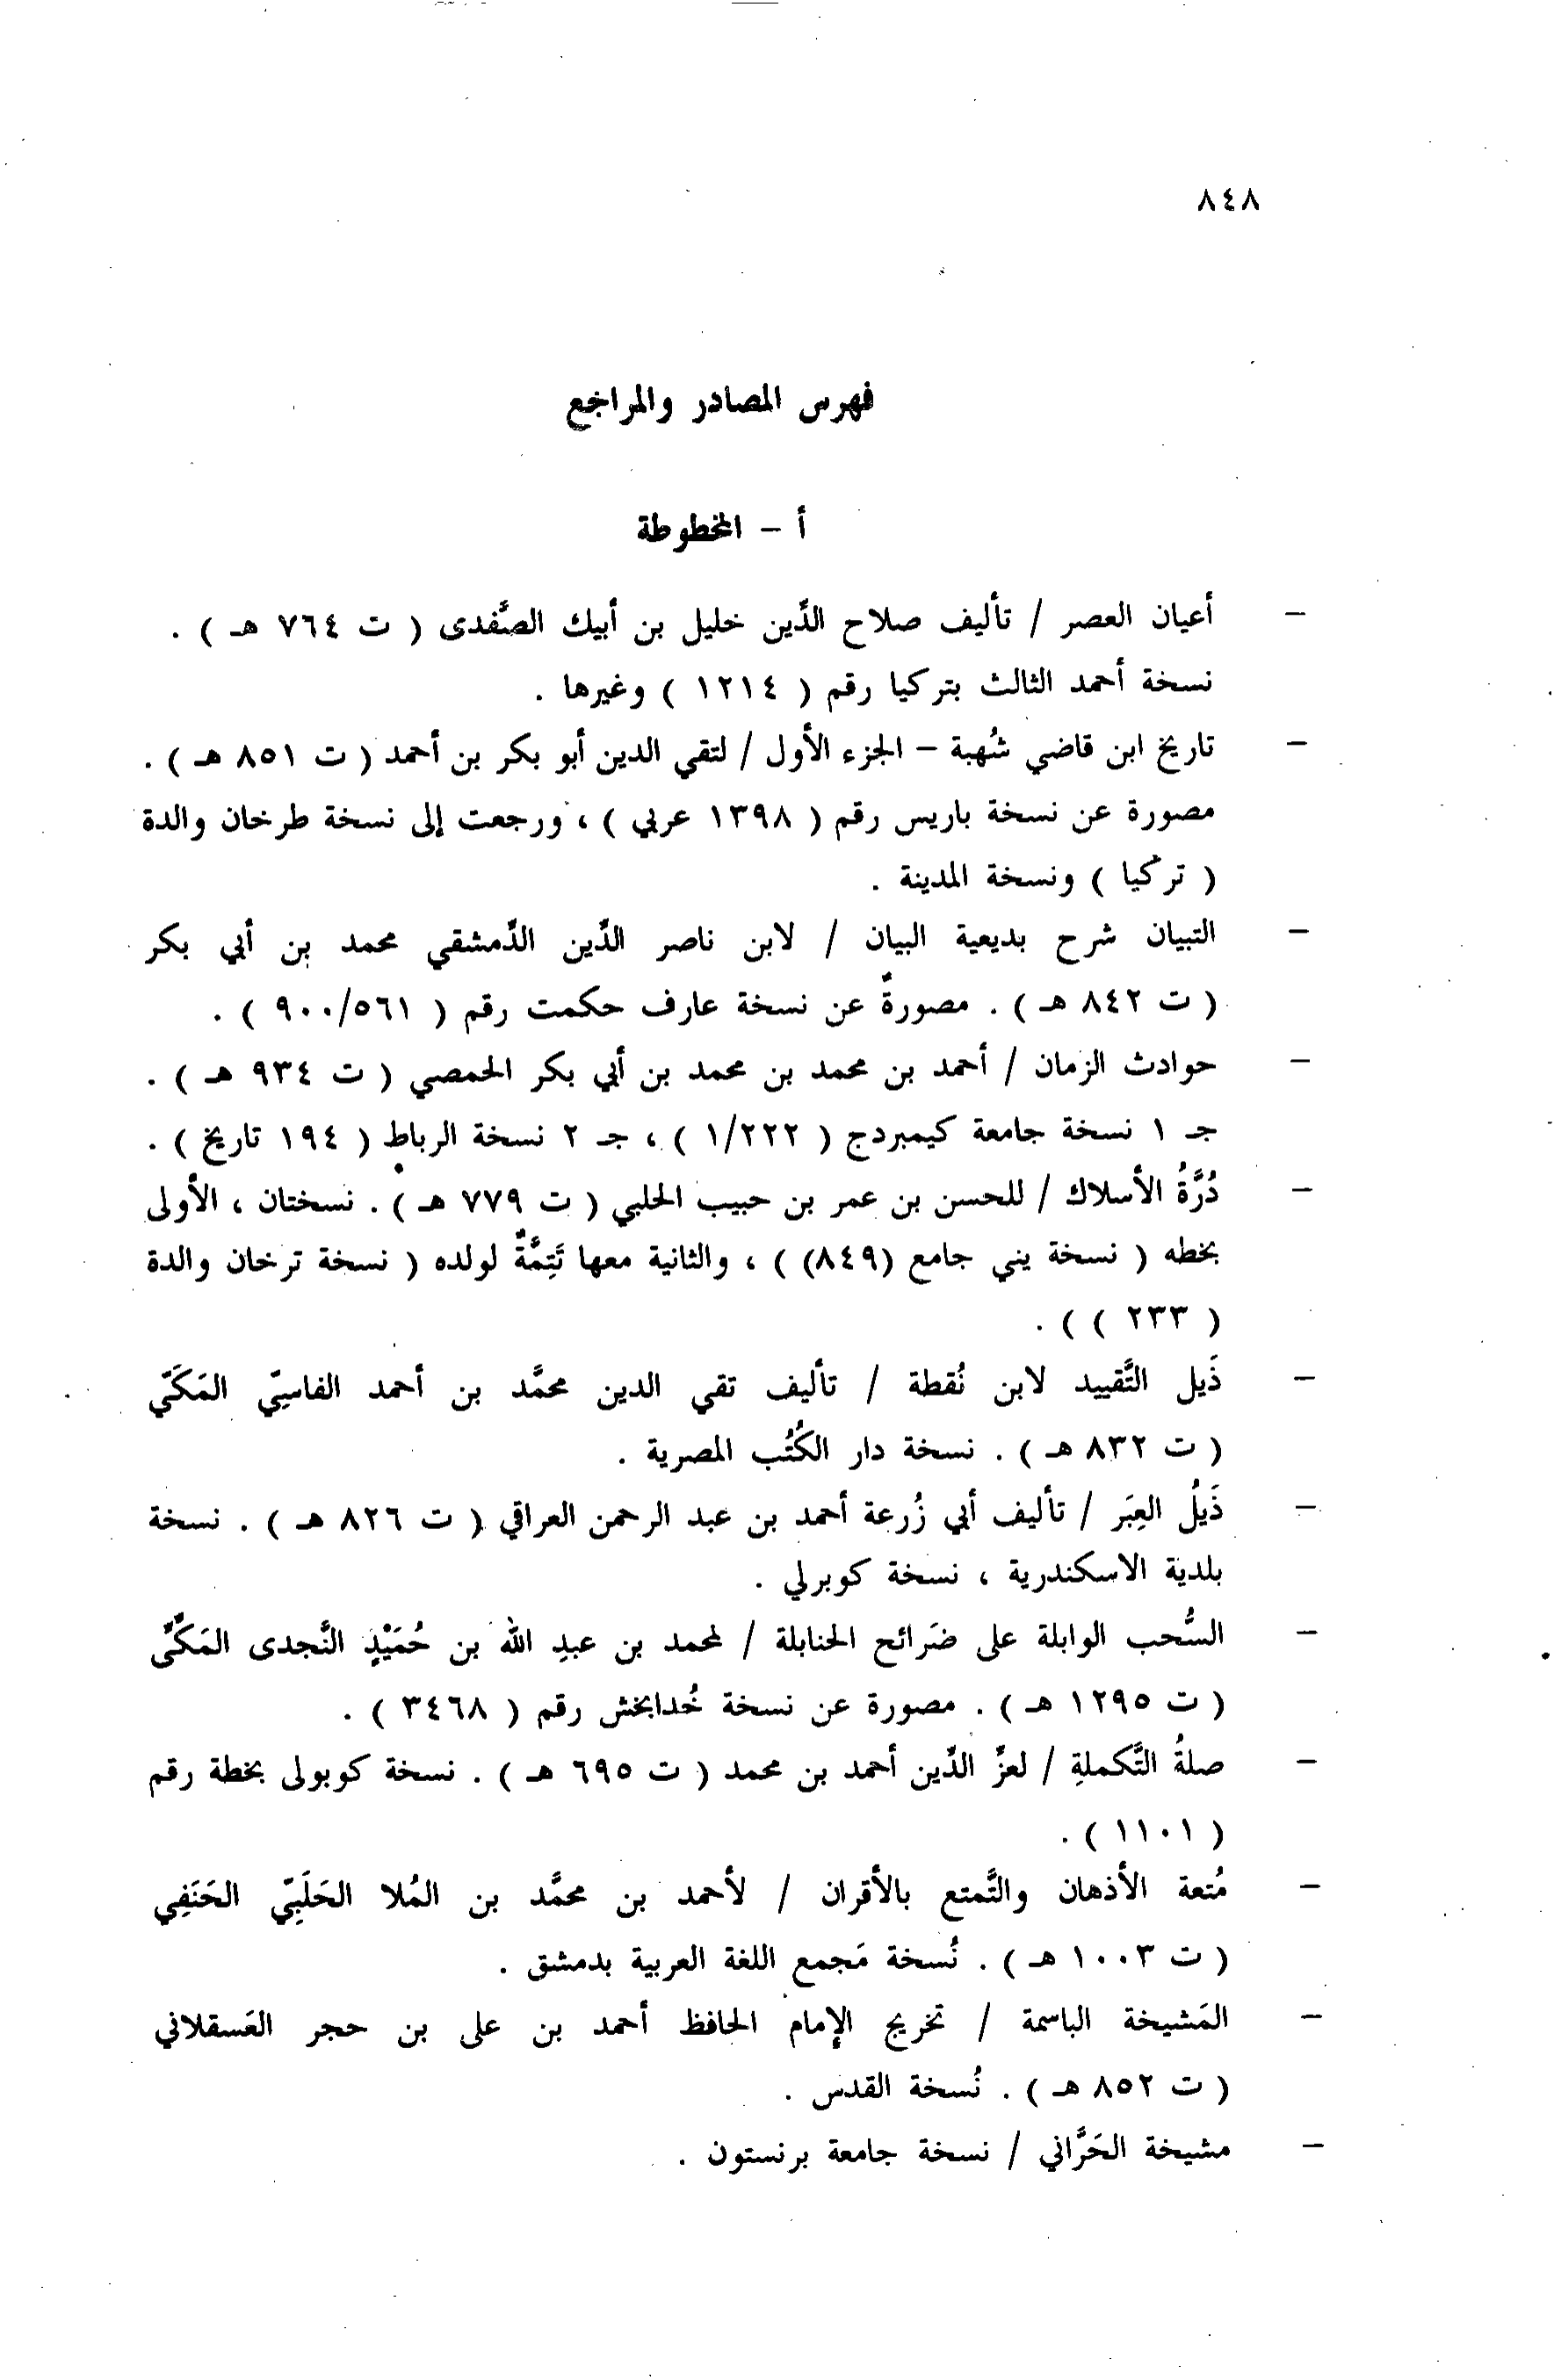 ٨٤٨
فهرس المصادر والمراجع
أ - المخطوطة
- أعيان العصر / تأليف صلاح الدِّين خليل بن أبيك الصَّفدى ( ت ٧٦٤ هـ ) .
نسخة أحمد الثالث بتركيا رقم ( ١٢١٤ ) وغيرها .
- تاريخ ابن قاضي شُهبة - الجزء الأول / لتقي الدين أبو بكر بن أحمد ( ت ٨٥١ هـ ) .
مصورة عن نسخة باريس رقم ( ١٣٩٨ عربي ) ، ورجعت إلى نسخة طرخان والدة
( تركيا ) ونسخة المدينة .
- التبيان شرح بديعية البيان / لابن ناصر الدِّين الدِّمشقي محمد بن أبي بكر
( ت ٨٤٢ هـ ) . مصورةٌ عن نسخة عارف حكمت رقم ( ٩٠٠/٥٦١ ) .
- حوادث الزمان / أحمد بن محمد بن محمد بن أبي بكر الحمصي ( ت ٩٣٤ هـ ) .
جـ ١ نسخة جامعة كيمبردج ( ١/٢٢٢ ) ، جـ ٢ نسخة الرباط ( ١٩٤ تاريخ ) .
- دُرَّةُ الأسلاك / للحسن بن عمر بن حبيب الحلبي ( ت ٧٧٩ هـ ) . نسختان ، الأولى
بخطه ( نسخة يني جامع (٨٤٩) ) ، والثانية معها تَتِمَّةٌ لولده ( نسخة ترخان والدة
( ٢٣٣ ) ) .
- ذَيل التَّقييد لابن نُقطة / تأليف تقي الدين محمَّد بن أحمد الفاسِيّ المَكَيّ
( ت ٨٣٢ هـ ) . نسخة دار الكُتُب المصرية .
- ذَيلُ العِبَر / تأليف أبي زُرعة أحمد بن عبد الرحمن العراقي ( ت ٨٢٦ هـ ) . نسخة
بلدية الاسكندرية ، نسخة كوبرلي .
- السُّحب الوابلة على ضَرائح الحنابلة / لمحمد بن عبدِ الله بن حُمَيْدٍ النَّجدى المَكِّىُّ
( ت ١٢٩٥ هـ ) . مصورة عن نسخة خُدابخش رقم ( ٣٤٦٨ ) .
- صلةُ التَّكملةِ / لعزِّ الدِّين أحمد بن محمد ( ت ٦٩٥ هـ ) . نسخة كوبولى بخطة رقم
( ١١٠١ ) .
- مُتعة الأذهان والتَّمتع بالأقران / لأحمد بن محمَّد بن المُلا الحَلَبِيّ الحَنَفِي
( ت ١٠٠٣ هـ ) . نُسخة مَجمع اللغة العربية بدمشق .
- المَشيخة الباسمة / تخريج الإمام الحافظ أحمد بن على بن حجر العَسقلاني
( ت ٨٥٢ هـ ) . نُسخة القدس .
- مشيخة الحَرَّاني / نسخة جامعة برنستون .